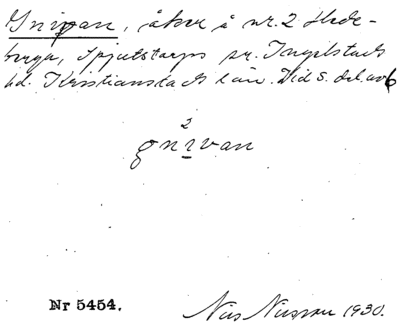 Gnipan, åker å nr. 2 Hede-
berga, Spjutstorps sn. Ingelstads
hd. Kristianstads län. Vid S. del. av 6
2
gnivan
Nr 5454.
Nils Nilsson 1930.